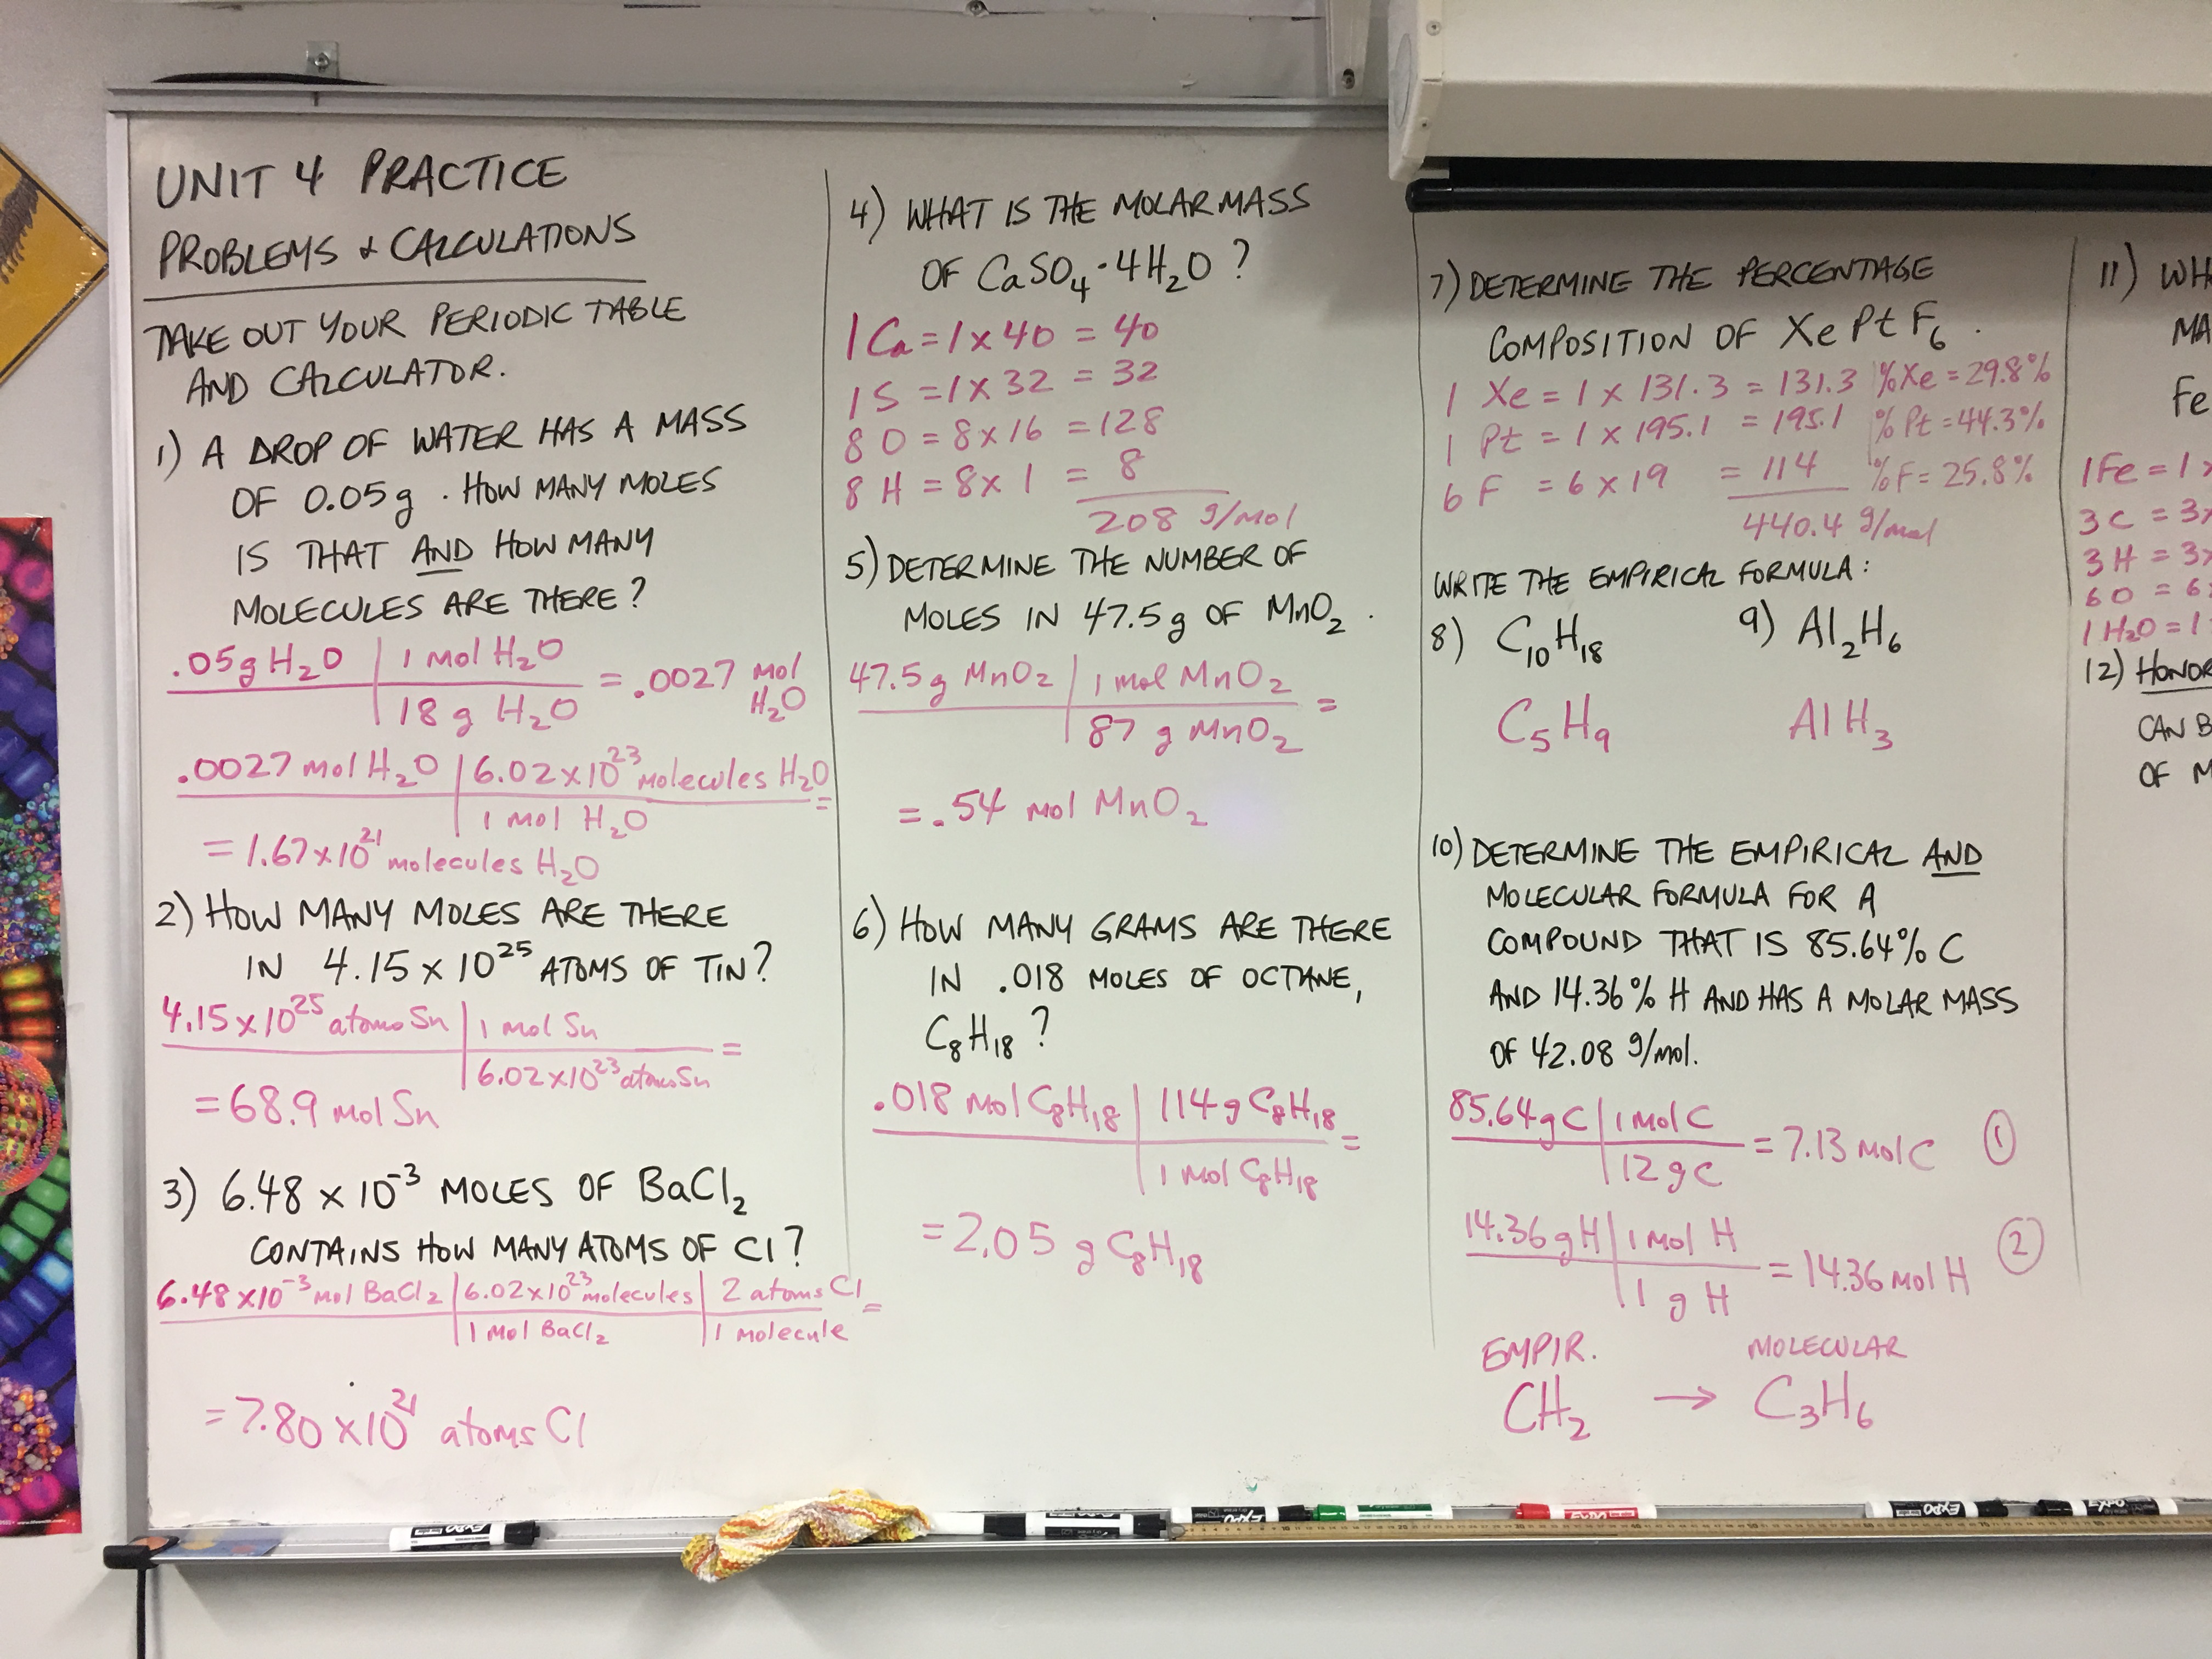 UNIT 4 PRACTICE
PROBLEMS & CALCULATIONS
TAKE OUT YOUR PERIODIC TABLE
AND CALCULATOR.
1) A DROP OF WATER HAS A MASS
OF 0.05g. HOW MANY MOLES
IS THAT AND HOW MANY
MOLECULES ARE THERE?
.05g H₂O | 1 mol H₂O
18 g H₂O
= .0027 mol
H₂O
.0027 mol H₂O | 6.02x10²³ molecules H₂O
1 mol H₂O
=
= 1.67x10²¹ molecules H₂O
2) HOW MANY MOLES ARE THERE
IN 4.15 x 10²⁵ ATOMS OF TIN?
4.15x10²⁵ atoms Sn | 1 mol Sn
6.02x10²³ atoms Sn
=
= 68.9 mol Sn
3) 6.48 x 10⁻³ MOLES OF BaCl₂
CONTAINS HOW MANY ATOMS OF Cl?
6.48x10⁻³ mol BaCl₂ | 6.02x10²³ molecules | 2 atoms Cl
1 mol BaCl₂ | 1 molecule
=
= 7.80 x10²¹ atoms Cl
4) WHAT IS THE MOLAR MASS
OF CaSO₄·4H₂O?
1 Ca = 1 x 40 = 40
1 S = 1 x 32 = 32
8 O = 8 x 16 = 128
8 H = 8 x 1 = 8
208 g/mol
5) DETERMINE THE NUMBER OF
MOLES IN 47.5g OF MnO₂.
47.5g MnO₂ | 1 mol MnO₂
87 g MnO₂
=
= .54 mol MnO₂
6) HOW MANY GRAMS ARE THERE
IN .018 MOLES OF OCTANE,
C₈H₁₈?
.018 mol C₈H₁₈ | 114 g C₈H₁₈
1 mol C₈H₁₈
=
= 2.05 g C₈H₁₈
7) DETERMINE THE PERCENTAGE
COMPOSITION OF XePtF₆.
1 Xe = 1 x 131.3 = 131.3 %Xe = 29.8%
1 Pt = 1 x 195.1 = 195.1 %Pt = 44.3%
6 F = 6 x 19 = 114 %F = 25.8%
440.4 g/mol
WRITE THE EMPIRICAL FORMULA:
8) C₁₀H₁₈ 9) Al₂H₆
C₅H₉ AlH₃
10) DETERMINE THE EMPIRICAL AND
MOLECULAR FORMULA FOR A
COMPOUND THAT IS 85.64% C
AND 14.36% H AND HAS A MOLAR MASS
OF 42.08 g/mol.
85.64g C | 1 mol C
12 g C
= 7.13 mol C ①
14.36 g H | 1 mol H
1 g H
= 14.36 mol H ②
EMPIR. MOLECULAR
CH₂ → C₃H₆
11) WH
MA
Fe
1 Fe = 1 x
3 C = 3x
3 H = 3x
6 O = 6
1 H₂O = 1
12) HONOR
CAN B
OF M
EXPO
EXPO
EXPO